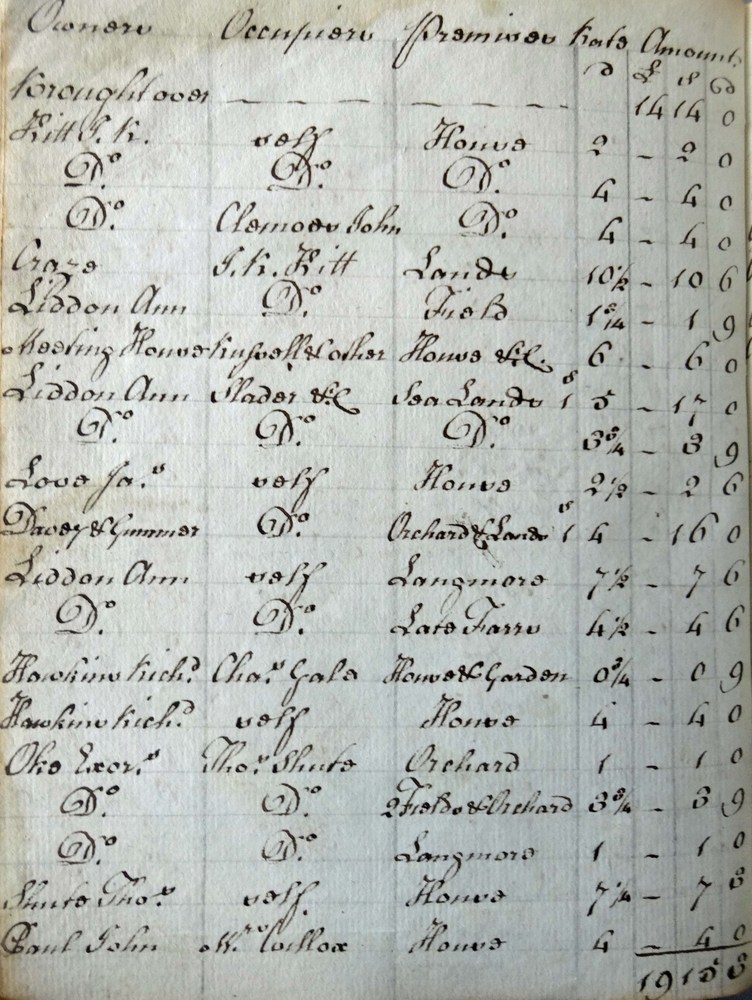 Owners Occupiers Premises Rate Amount
d £ s d
Brought over — — — — — — — — 14 14 0
Kitt J. K. self House 2 - 2 0
Do. Do. Do. 4 - 4 0
Do. Clemoes John Do. 4 - 4 0
Craze J. K. Kitt Lands 10½ - 10 6
Liddon Ann Do. Field 1¾ - 1 9
Meeting House Russell & other House &c. 6 - 6 0
Liddon Ann Slader &c Sea Lands 1s 5 - 17 0
Do. Do. Do. 3¾ - 3 9
Love Jas. self House 2½ - 2 6
Davey & Gummer Do. Orchard & Lands 1s 4 - 16 0
Liddon Ann self Langmore 7½ - 7 6
Do. Do. Late Farrs 4½ - 4 6
Hawkins Richd. Chas. Gale House & Garden 0¾ - 0 9
Hawkins Richd. self House 4 - 4 0
Oke Exors. Thos. Shute Orchard 1 - 1 0
Do. Do. 2 Fields & Orchard 3¾ - 3 9
Do. Do. Langmore 1 - 1 0
Shute Thos. self House 7¼ - 7 3
Paul John Mrs Willox House 4 - 4 0
19 15 3